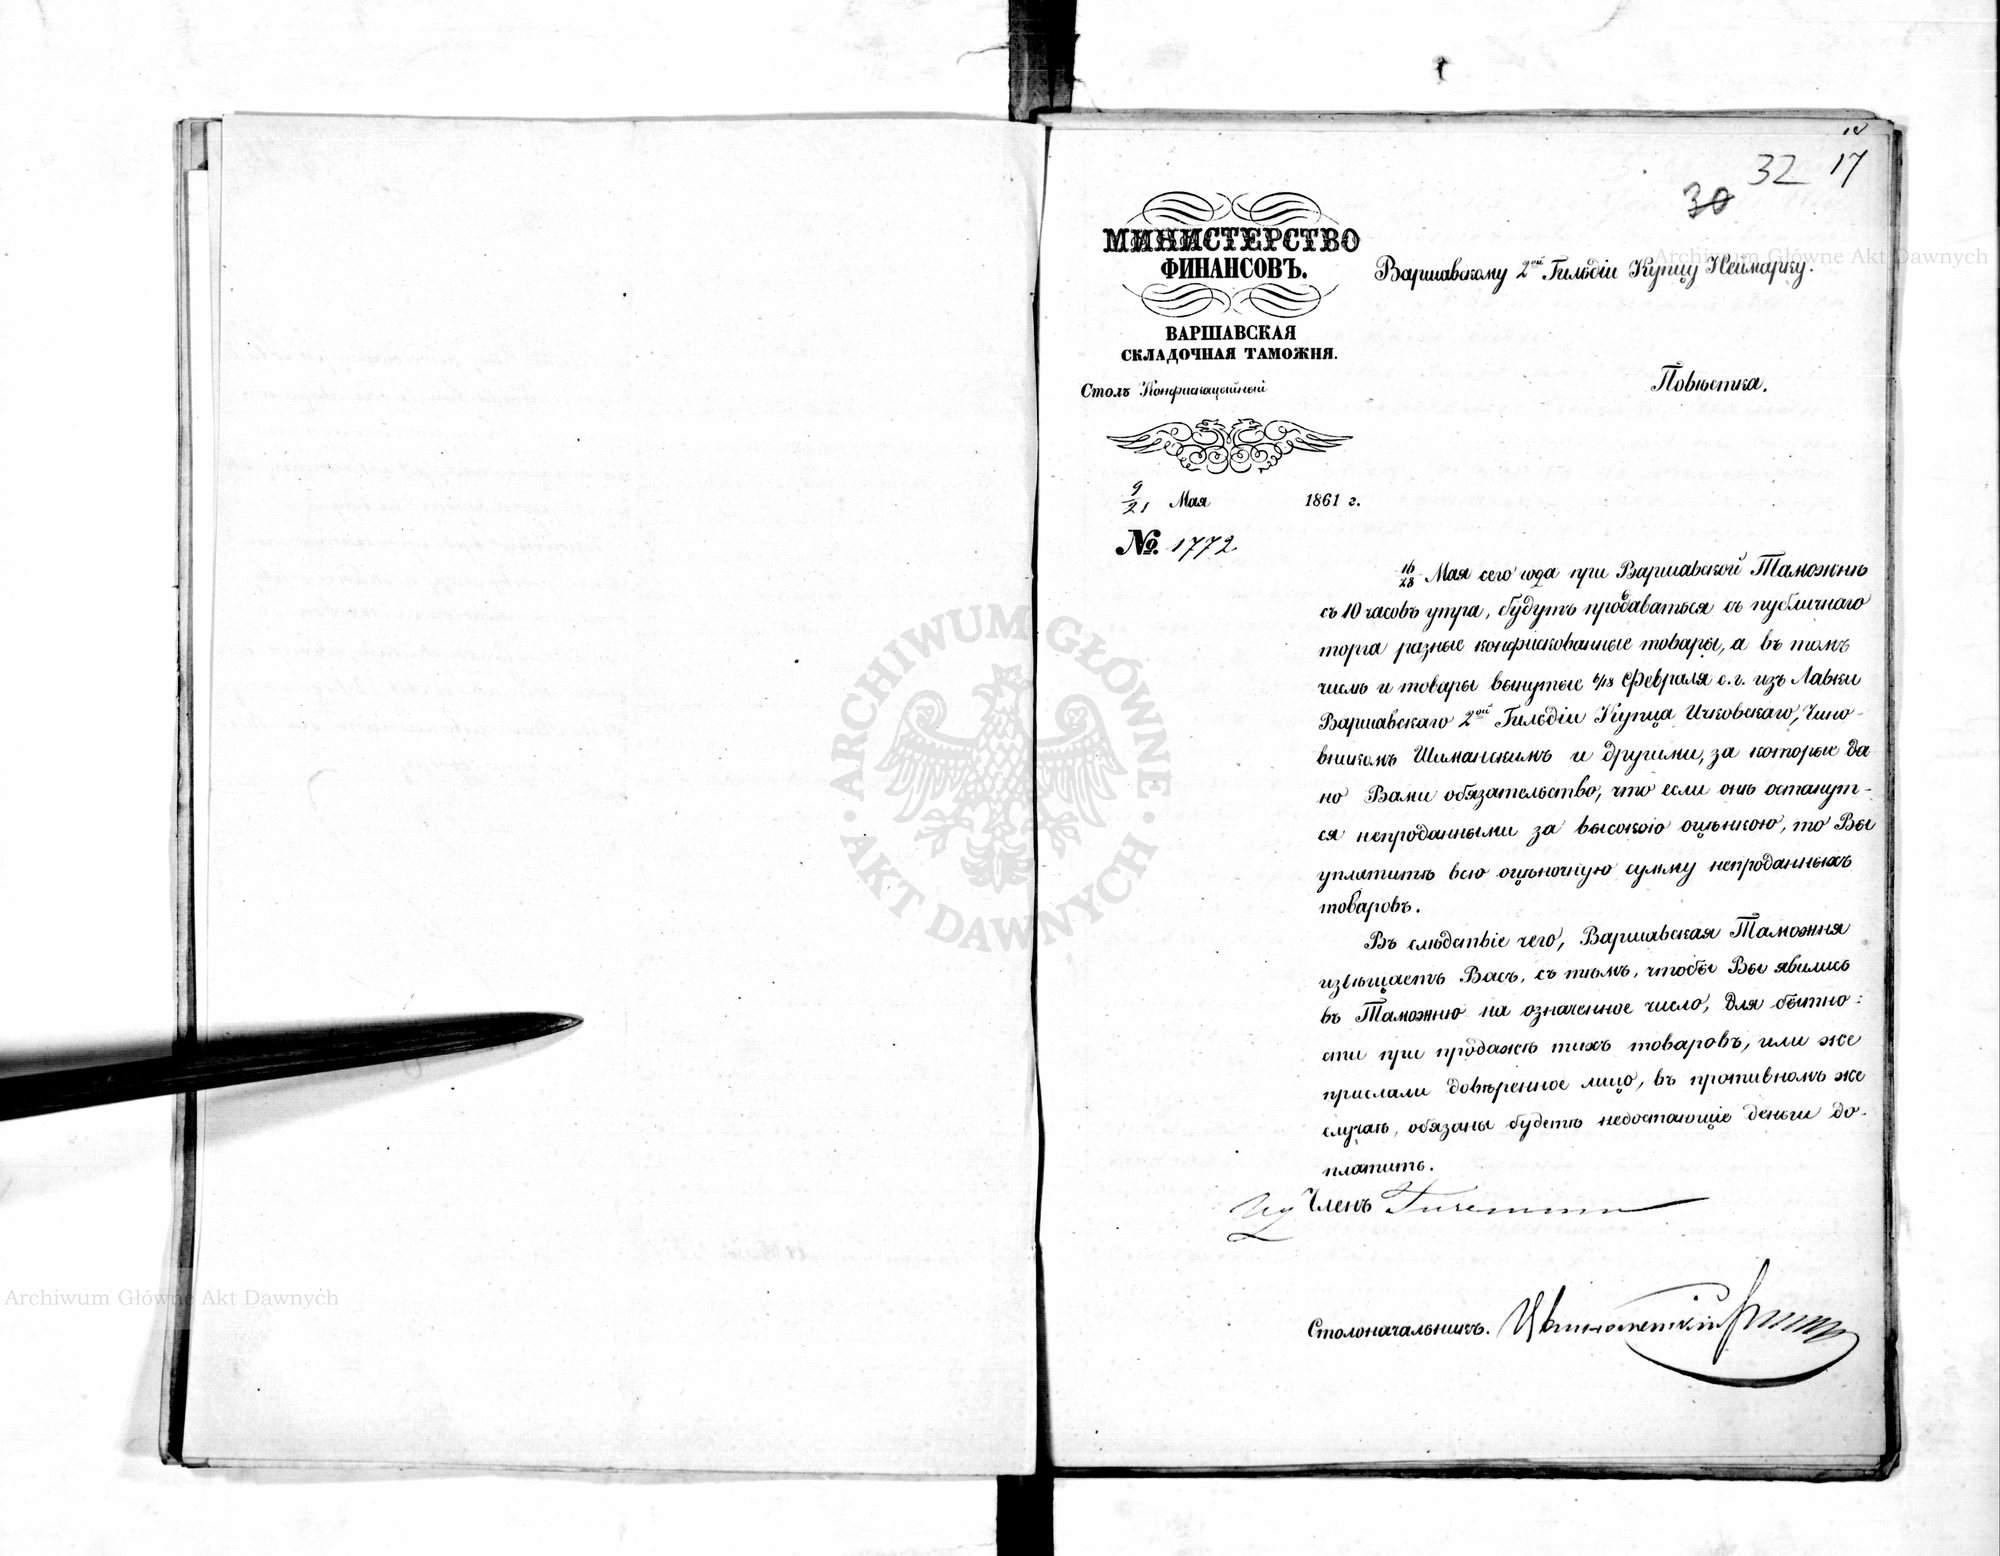 32 17
30
МИНИСТЕРСТВО
ФИНАНСОВЪ.
ВАРШАВСКАЯ
СКЛАДОЧНАЯ ТАМОЖНЯ.
Столъ Конфискаціонный
9/21 Мая 1861 г.
№. 1772
Варшавскому 2ой Гильдіи Купцу Неймарку.
Повѣстка.
16/28 Мая сего года при Варшавской Таможнѣ
съ 10 часовъ утра, будутъ продаваться съ публичнаго
торга разные конфискованные товары, а въ томъ
числѣ и товары вынутые 6/18 Февраля с. г. изъ Лавки
Варшавскаго 2ой Гильдіи Купца Ичковскаго, Чино-
вникомъ Шиманскимъ и другими, за которые да
но Вами обязательство, что если онѣ останут-
ся непроданными за высокою оцѣнкою, то Вы
уплатите всю оцѣночную сумму непроданныхъ
товаровъ.
Въ слѣдствіе чего, Варшавская Таможня
извѣщаетъ Васъ, съ тѣмъ, чтобы Вы явились
въ Таможню на означенное число, для бытно-
сти при продажѣ тѣхъ товаровъ, или же
прислали довѣренное лицо, въ противномъ же
случаѣ, обязаны будете недостающіе деньги до-
платить.
Членъ
Столоначальникъ.
ARCHIWUM GŁÓWNE
AKT DAWNYCH
Archiwum Główne Akt Dawnych
Archiwum Główne Akt Dawnych